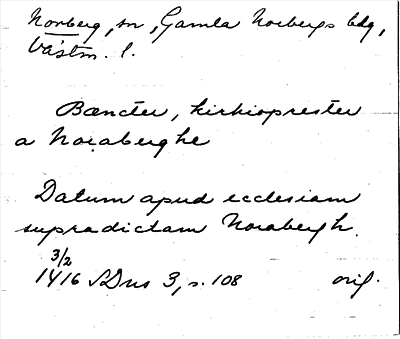 Norberg, sn, Gamla Norbergs bdg,
Västm. l.
Bæncter, kirkioprester
a Noraberghe
Datum apud ecclesiam
supradictam Norabergh.
3/2
1416 SDns 3, s. 108 orig.